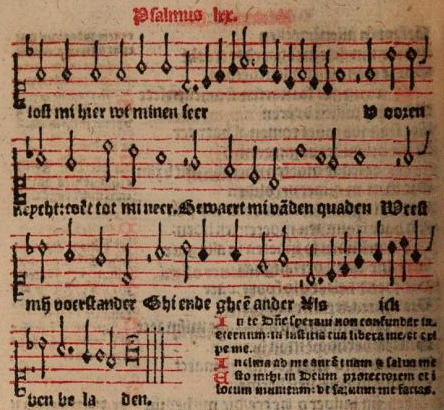 Psalmus lxx.
lost mi hier wt minen seer V ooren
neycht: coēt tot mi neer. Bewaert mi vādē quaden Weest
mij voorstander Ghi ende gheē ander Als ick
ben be la den.
In te Dñe speravi non confundar in
eternum: in iusticia tua libera me: et eri
pe me.
Inclina ad me aurē tuam et salva me
Esto mihi in Deum protectorem et i
locum munitum: vt salvum me facias.